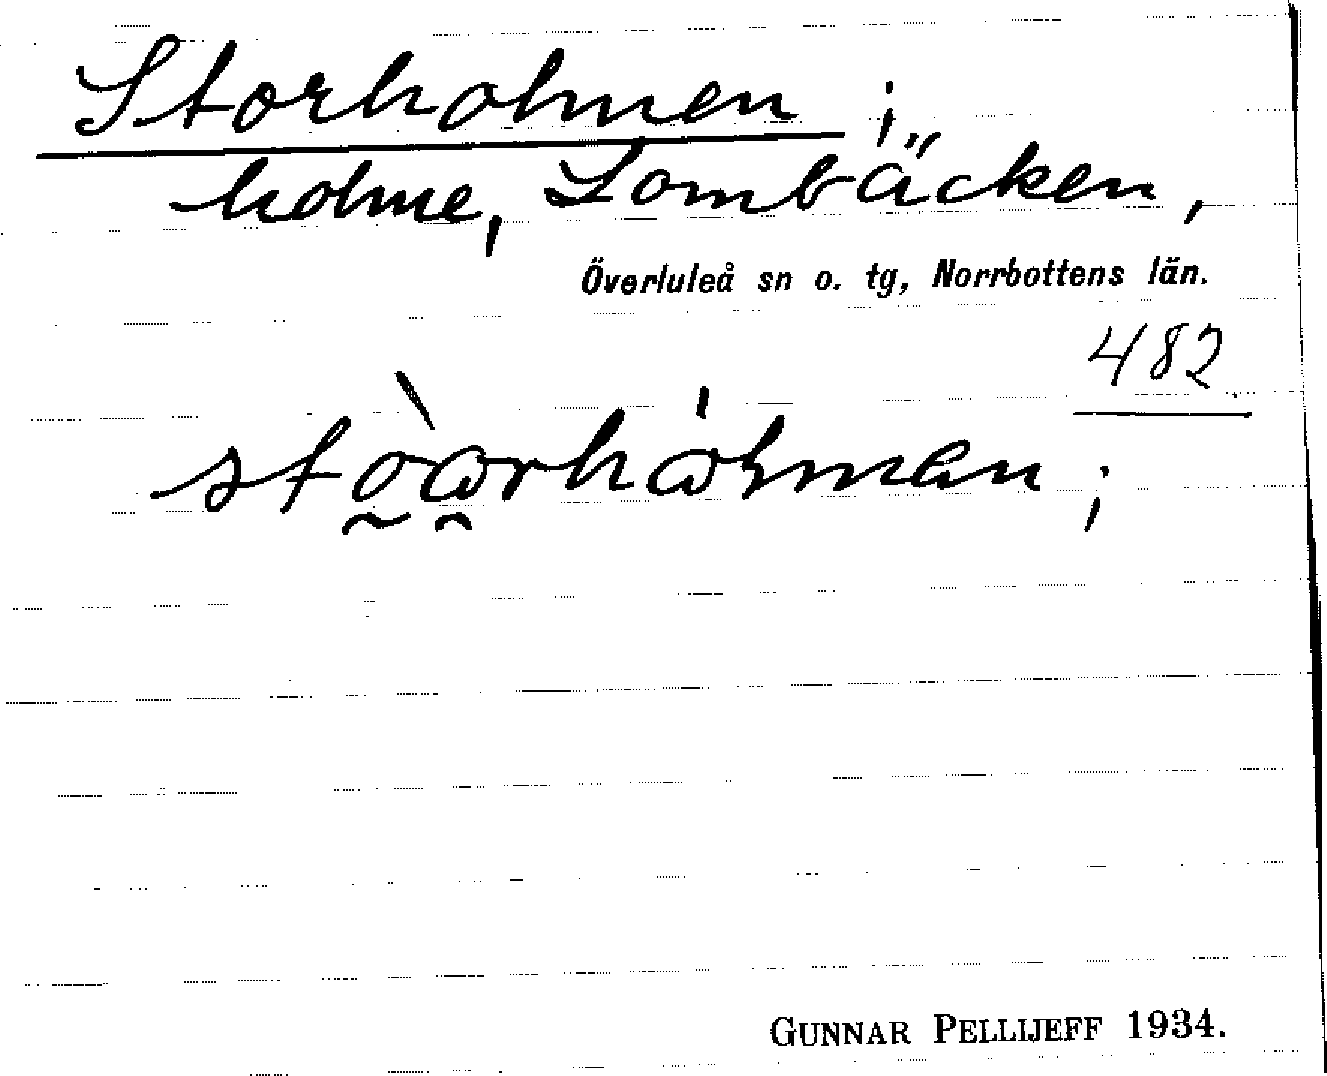 Storholmen;
holme, Lombäcken,
Överluleå sn o. tg, Norrbottens län.
482
GUNNAR PELLIJEFF 1934.